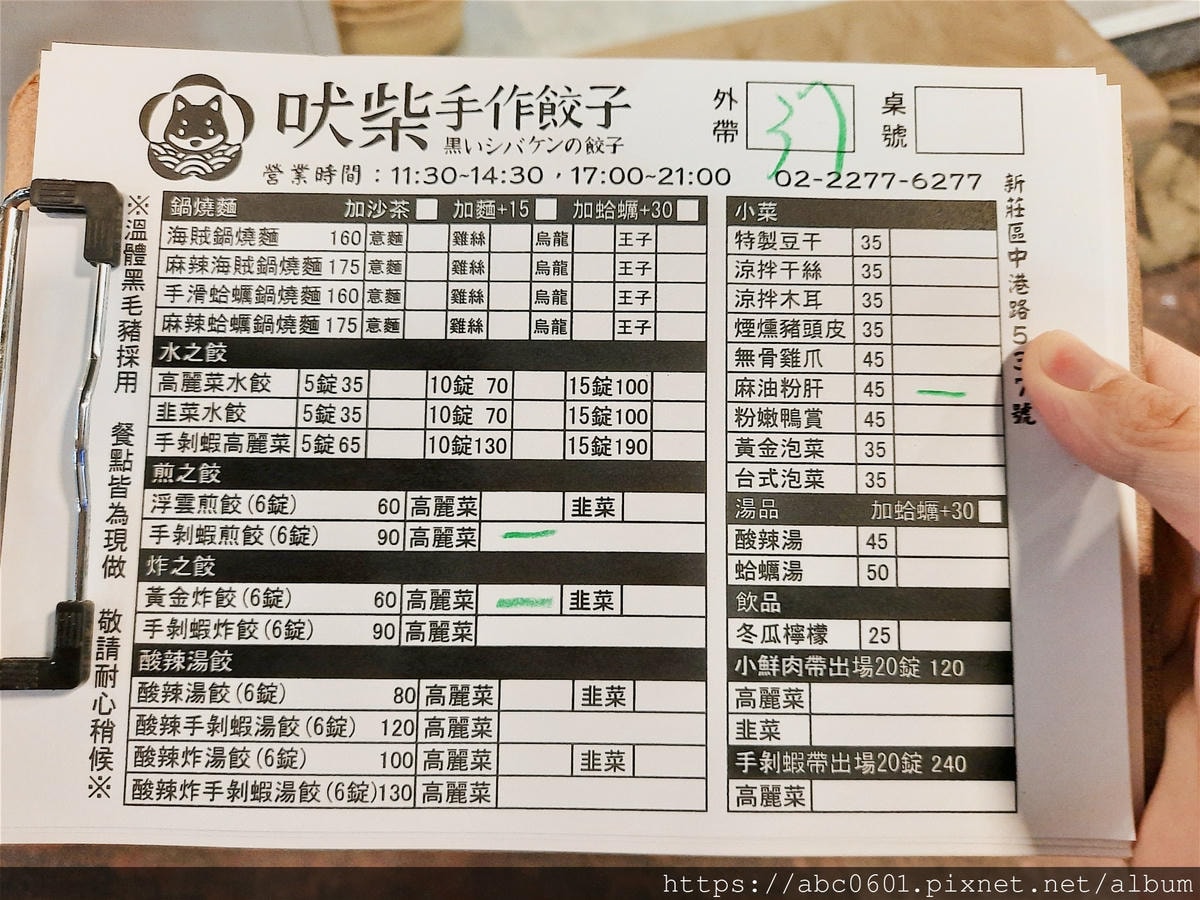 吠柴手作餃子
黒いシバケンの餃子
外帶
桌號
營業時間：11:30~14:30，17:00~21:00 02-2277-6277
新莊區中港路537號
※溫體黑毛豬採用 餐點皆為現做 敬請耐心稍候※
鍋燒麵 加沙茶 加麵+15 加蛤蠣+30
海賊鍋燒麵 160 意麵 雞絲 烏龍 王子
麻辣海賊鍋燒麵 175 意麵 雞絲 烏龍 王子
手滑蛤蠣鍋燒麵 160 意麵 雞絲 烏龍 王子
麻辣蛤蠣鍋燒麵 175 意麵 雞絲 烏龍 王子
水之餃
高麗菜水餃 5錠35 10錠 70 15錠100
韭菜水餃 5錠35 10錠 70 15錠100
手剝蝦高麗菜 5錠65 10錠130 15錠190
煎之餃
浮雲煎餃(6錠) 60 高麗菜 韭菜
手剝蝦煎餃(6錠) 90 高麗菜
炸之餃
黃金炸餃(6錠) 60 高麗菜 韭菜
手剝蝦炸餃(6錠) 90 高麗菜
酸辣湯餃
酸辣湯餃(6錠) 80 高麗菜 韭菜
酸辣手剝蝦湯餃(6錠) 120 高麗菜
酸辣炸湯餃(6錠) 100 高麗菜 韭菜
酸辣炸手剝蝦湯餃(6錠)130 高麗菜
小菜
特製豆干 35
涼拌干絲 35
涼拌木耳 35
煙燻豬頭皮 35
無骨雞爪 45
麻油粉肝 45
粉嫩鴨賞 45
黃金泡菜 35
台式泡菜 35
湯品 加蛤蠣+30
酸辣湯 45
蛤蠣湯 50
飲品
冬瓜檸檬 25
小鮮肉帶出場20錠 120
高麗菜
韭菜
手剝蝦帶出場20錠 240
高麗菜
https://abc0601.pixnet.net/album